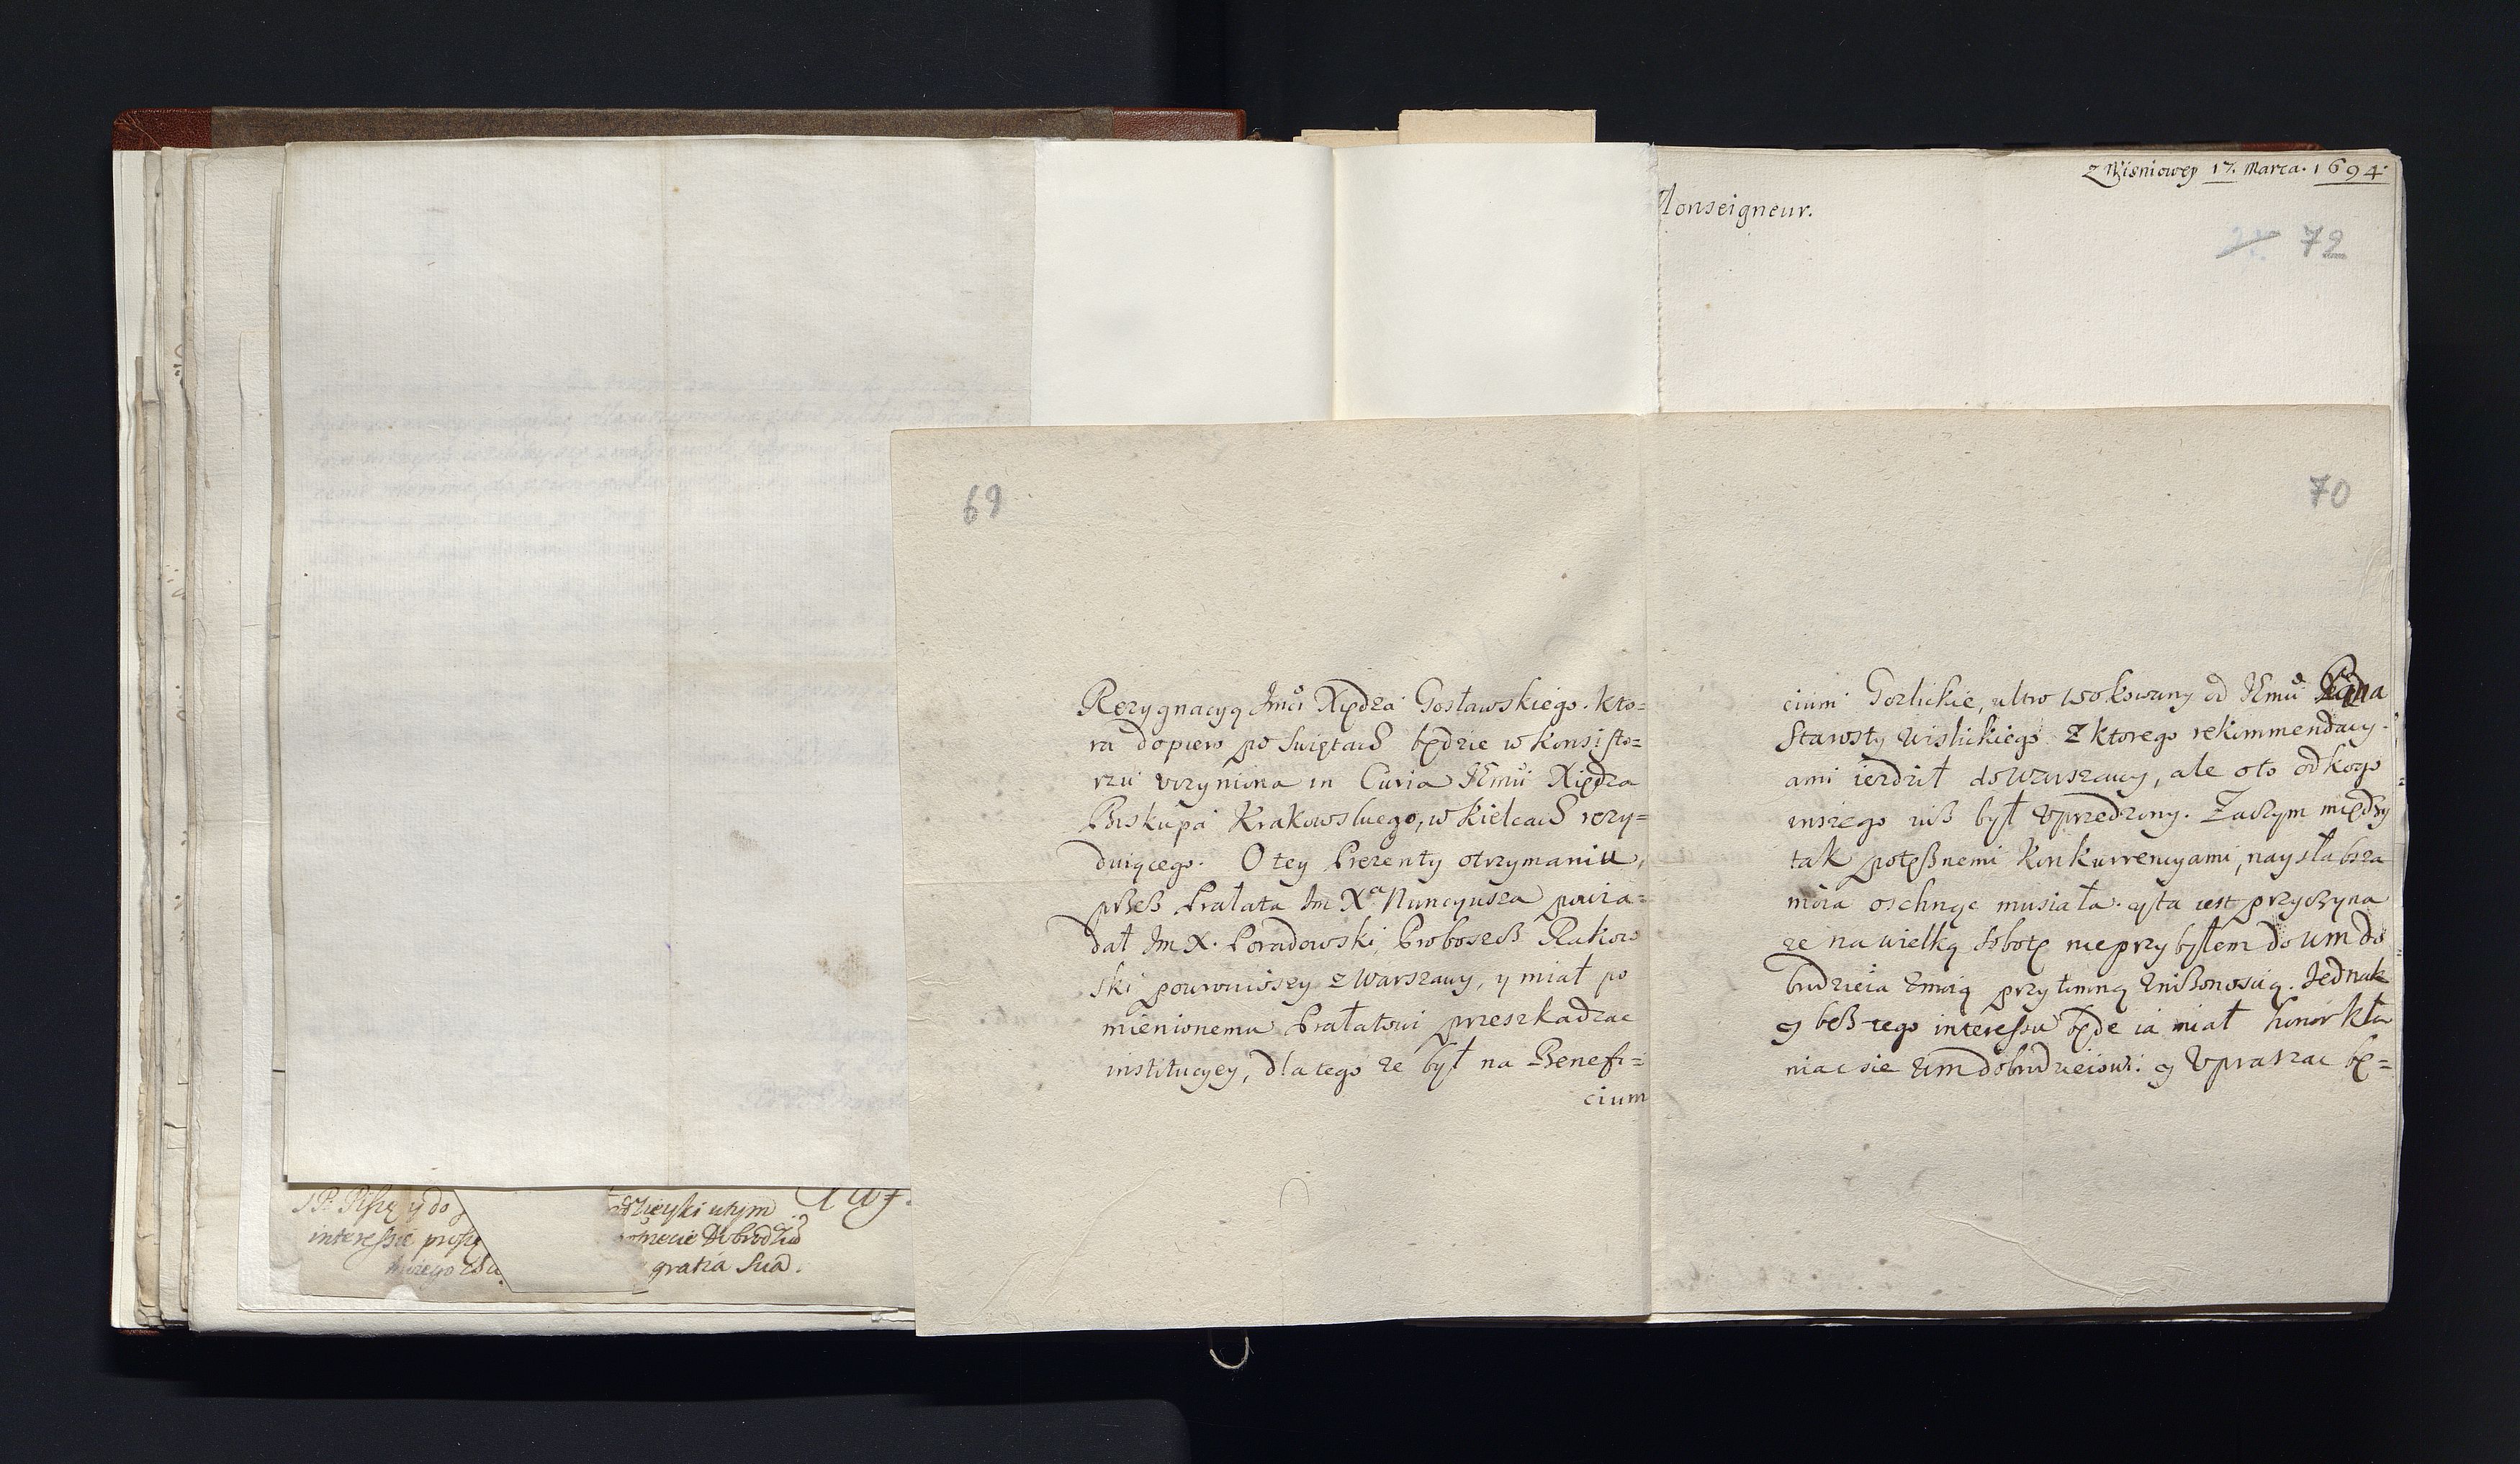 z Wisniowey 17. Marca. 1694.
Monseigneur.
72
69
Rezygnacyą Jmci Xiędza Gosławskiego. kto=
ra dopiero po Swiętach będzie w konsisto=
rzu uczyniona in Curia JEmci Xiędza
Biskupa Krakowskiego, w Kielcach rezy=
duiącego. O tey Prezenty otrzymaniu,
przeß Prałata Im Xa Nuncyusza powia=
dał Im X. Poradowski, Proboszcß Rakow
ski powrociwszy z Warszawy, y miał po
mienionemu Prałatowi przeszkadzac
institucyey, dlatego ze był na Benefi=
cium
70
cium Gorlickie, ultro wokowany od JEmci
Starosty Wislickiego z ktorego rekommendacy=
ami iezdził do Warszawy, ale oto od kogo
inszego iuß był uprzedzony. Zaczym między
tak potęßnemi konkurrencyami, naysłabsza
moia oschnąc musiała. y ta iest przyczyna
ze na wielką sobotę nie przybyłem do Um do
brodzieia z moią przytomną Unißonoscią. Jednak
y beß tego interessu będe ia miał honor kła
niac sie Um dobrodzieiowi. y Upraszac bę=
J P. Piszę y do
interessie proszę
gratia Sua.